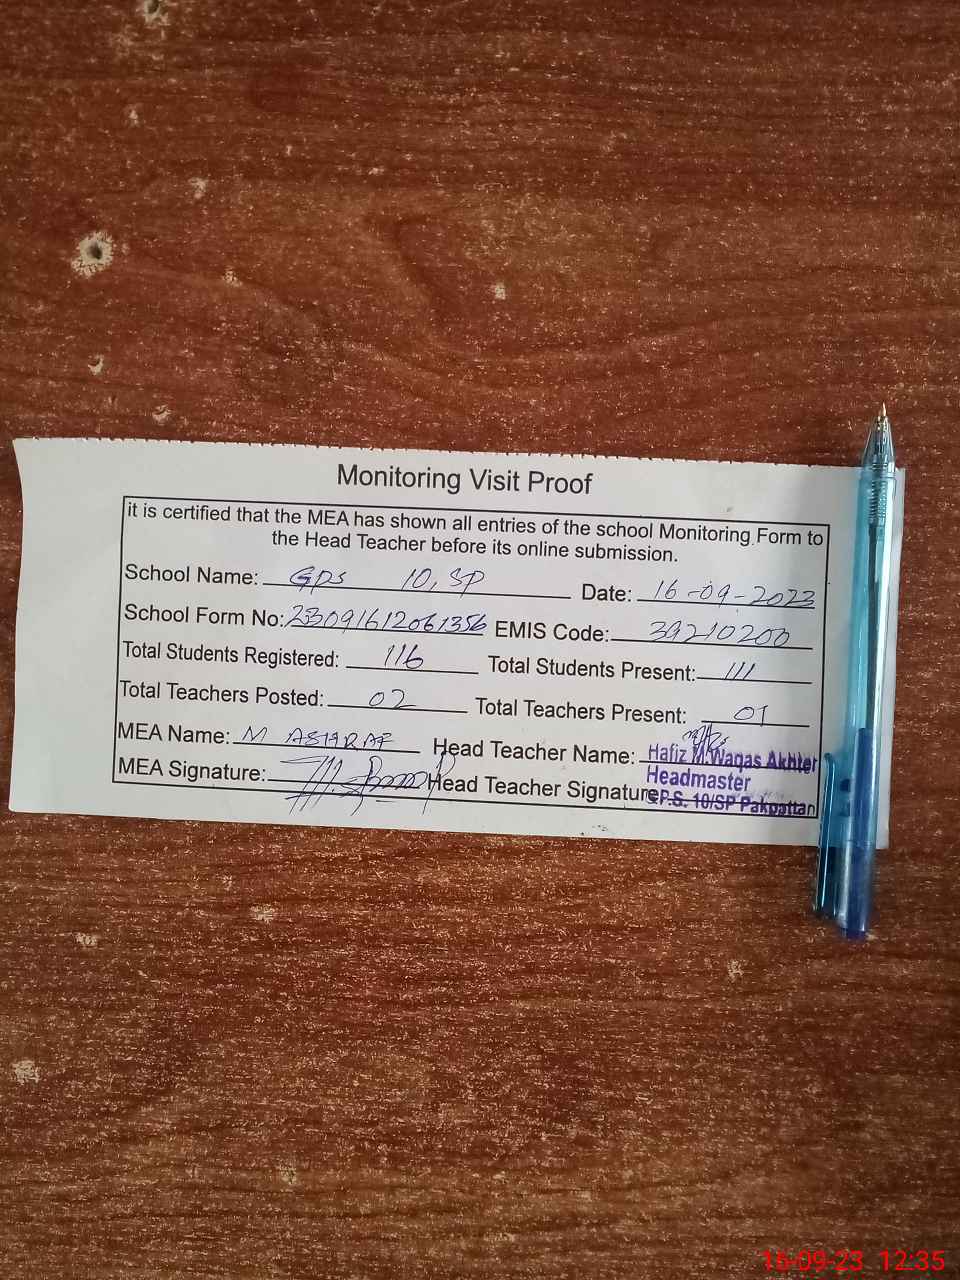 Monitoring Visit Proof
it is certified that the MEA has shown all entries of the school Monitoring Form to
the Head Teacher before its online submission.
School Name: GPS 10, SP Date: 16-09-2023
School Form No: 233091612061356 EMIS Code: 39210200
Total Students Registered: 116 Total Students Present: 111
Total Teachers Posted: 02 Total Teachers Present: 01
MEA Name: M ASHRAF Head Teacher Name: Hafiz M.Waqas Akhter
Headmaster
MEA Signature: Head Teacher Signature G.P.S. 10/SP Pakpattan
16-09-23 12:35